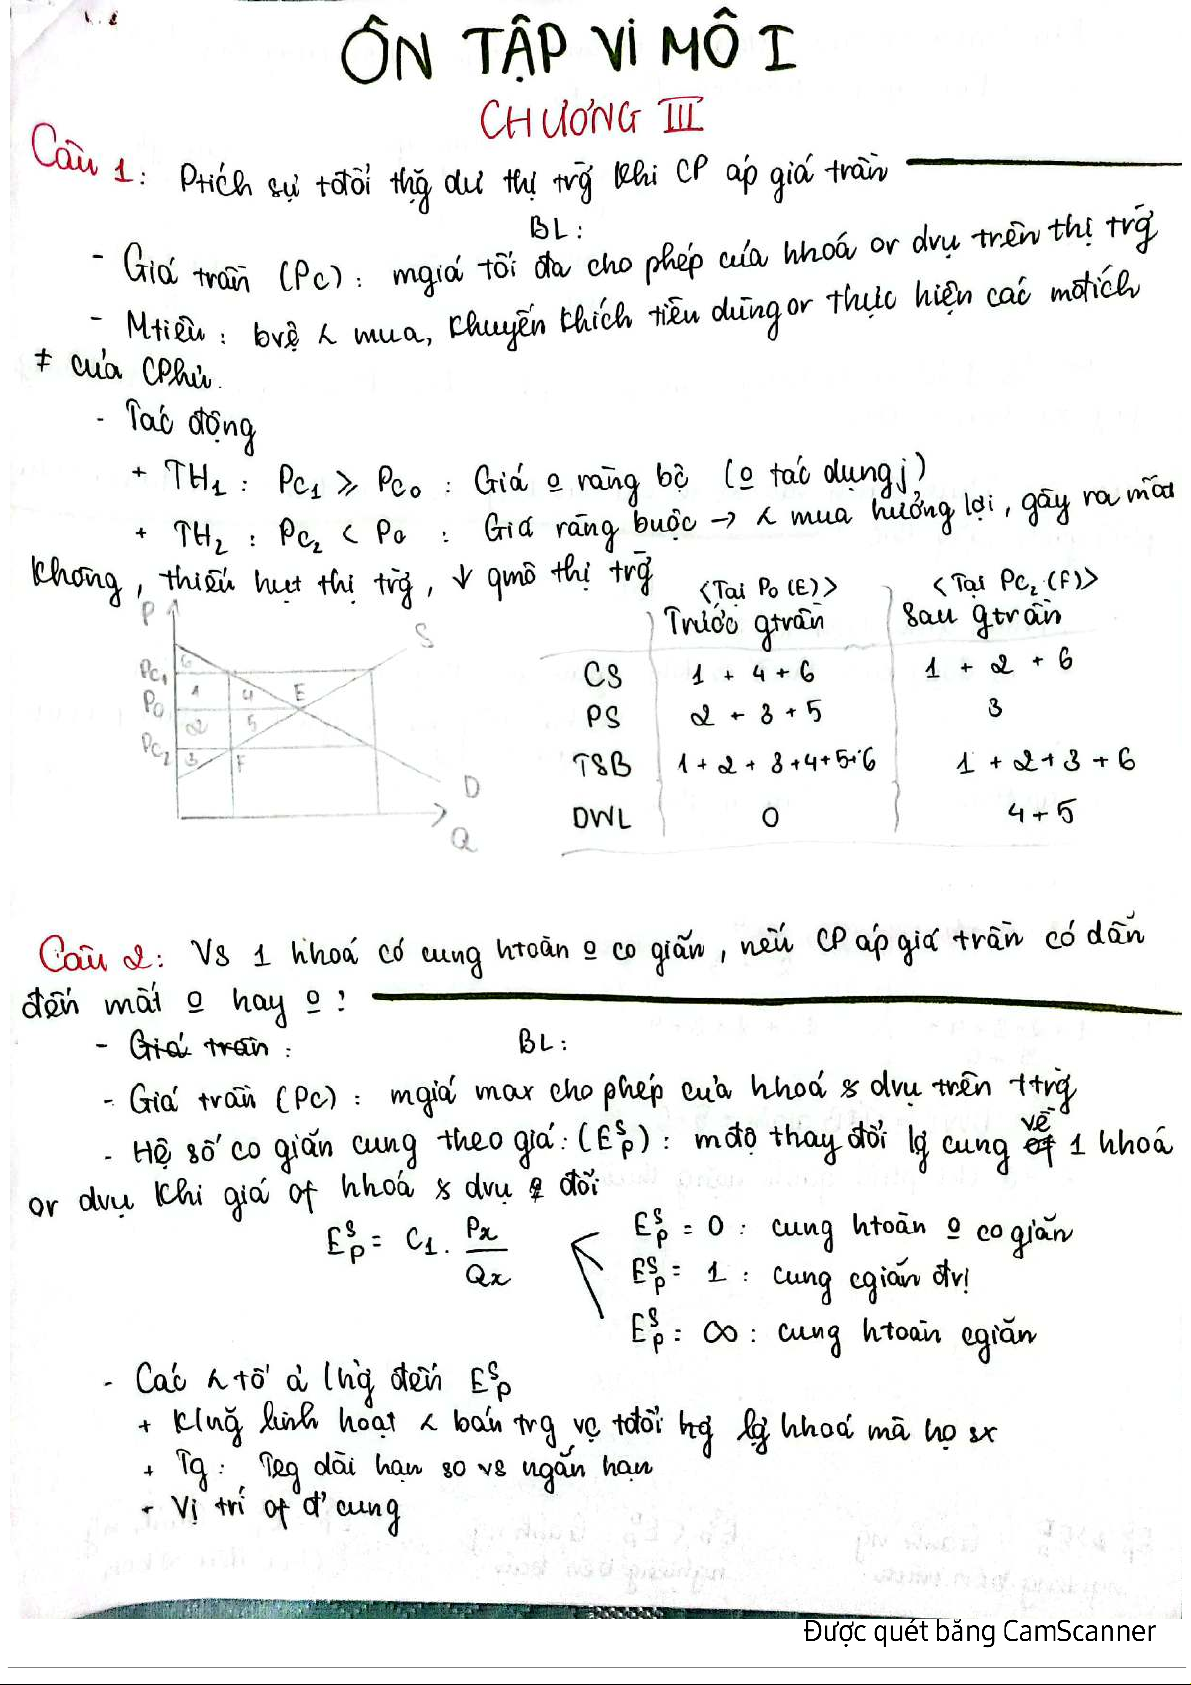 ÔN TẬP VI MÔ I
CHƯƠNG III
Câu 1: Ptích sự tđổi thg̃ dư thị trg̃ khi CP áp giá trần
BL:
- Giá trần (Pc): mgiá tối đa cho phép của hhoá or dvụ trên thị trg̃
- Mtiêu: bvệ < mua, khuyến khích tiêu dùng or thực hiện các mđtích
≠ của CPhủ.
- Tác động
+ TH1: Pc1 ≥ Pco : Giá o ràng bộ (o tác dụng)
+ TH2: Pc2 < Po : Giá ràng buộc → < mua hưởng lợi, gây ra mất
không, thiếu hụt thị trg̀, ↓ qmô thị trg̃
<Tại Po (E)> <Tại Pc2 (F)>
Trước gtrần Sau gtrần
CS 1 + 4 + 6 1 + 2 + 6
PS 2 + 3 + 5 3
TSB 1 + 2 + 3 + 4 + 5 + 6 1 + 2 + 3 + 6
DWL 0 4 + 5
P S
Pc1 6
Po 1 4 E
2 5
Pc2 3 F
D
Q
Câu 2: Vs 1 hhoá có cung htoàn o co giãn, nếu CP áp giá trần có dẫn
đến mất o hay o?
- Giá trần:
BL:
- Giá trần (Pc): mgiá max cho phép của hhoá & dvụ trên ttrg̀
- Hệ số co giãn cung theo giá: (E^S_P): mđộ thay đổi lg cung về of 1 hhoá
or dvụ khi giá of hhoá & dvụ đổi
E^S_P = C1 . Px/Qx
E^S_P = 0 : cung htoàn o co giãn
E^S_P = 1 : cung cgiãn đvị
E^S_P = ∞ : cung htoàn cgiãn
- Các < tố ả hg̀ đến E^S_P
+ Klng̃ linh hoạt < bán trg vc tđổi lg hhoá mà họ sx
+ Tg: Trg dài hạn so vs ngắn hạn
+ Vị trí of đ' cung
Được quét bằng CamScanner